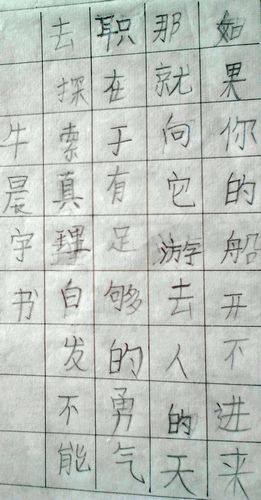 如果你的船开不进来
那就向它游去人的天
职在于有足够的勇气
去探索真理白发不能
牛晨宇书